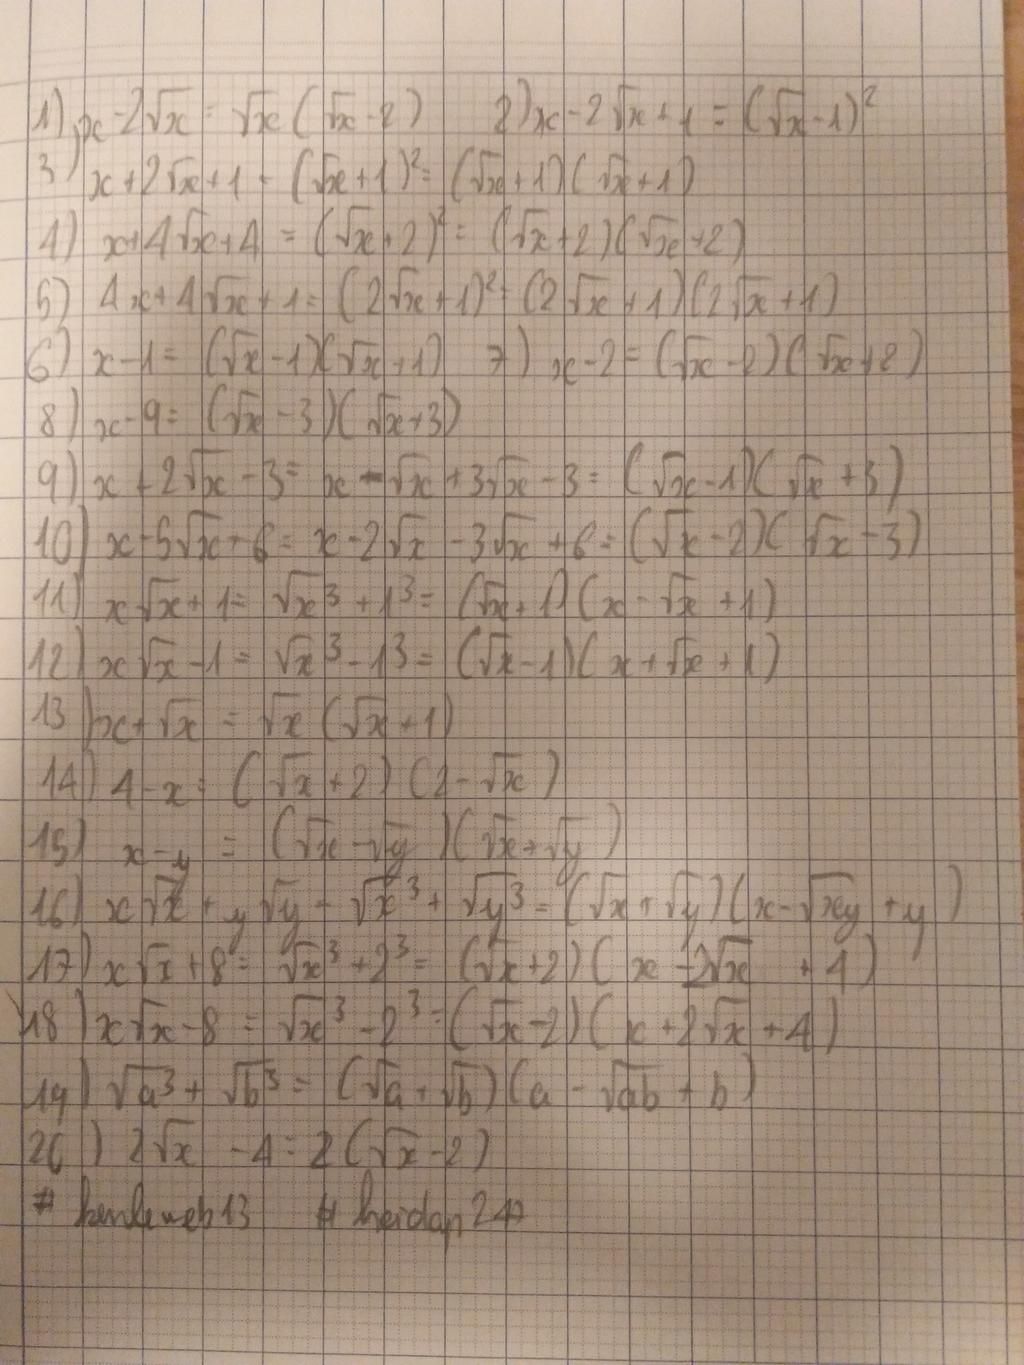 1) x - 2√x = √x (√x - 2) 2) x - 2√x + 1 = (√x - 1)²
3) x + 2√x + 1 = (√x + 1)² = (√x + 1)(√x + 1)
4) x + 4√x + 4 = (√x + 2)² = (√x + 2)(√x + 2)
5) 4x + 4√x + 1 = (2√x + 1)² = (2√x + 1)(2√x + 1)
6) x - 1 = (√x - 1)(√x + 1) 7) x - 2 = (√x - 2)(√x + 2)
8) x - 9 = (√x - 3)(√x + 3)
9) x + 2√x - 3 = x - √x + 3√x - 3 = (√x - 1)(√x + 3)
10) x - 5√x + 6 = x - 2√x - 3√x + 6 = (√x - 2)(√x - 3)
11) x√x + 1 = √x³ + 1³ = (√x + 1)(x - √x + 1)
12) x√x - 1 = √x³ - 1³ = (√x - 1)(x + √x + 1)
13) x + √x = √x (√x + 1)
14) 4 - x = (√x + 2)(2 - √x)
15) x - y = (√x - √y)(√x + √y)
16) x√x + y√y = √x³ + √y³ = (√x + √y)(x - √xy + y)
17) x√x + 8 = √x³ + 2³ = (√x + 2)(x - 2√x + 4)
18) x√x - 8 = √x³ - 2³ = (√x - 2)(x + 2√x + 4)
19) √a³ + √b³ = (√a + √b)(a - √ab + b)
20) 2√x - 4 = 2(√x - 2)